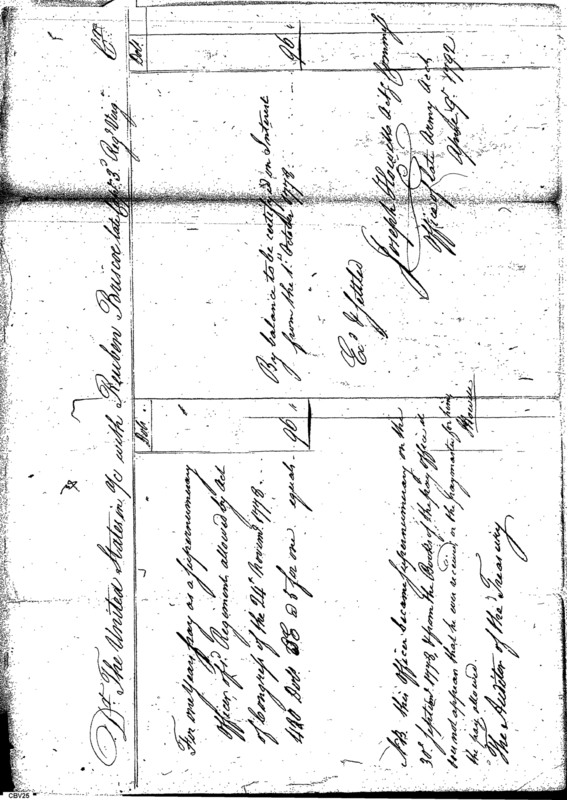 Dr. The United States in a/c with Reuben Briscoe late Capt. 3d Regt. Virga. Cr.
Dols.
For one years pay as a supernumerary
Officer of sd. Regiment allowed by Act
of Congress of the 24th Novemr. 1778
480 Dols. @ 5 for one equals 96
N.B. this Officer became supernumerary on the
30th Septemr. 1778, & from the Books of the pay Office it
does not appear that he ever received, or the paymaster for him,
the pay
Howell
The Auditor of the Treasury
Dols.
By balance to be certified on Interest
from the 1st October 1778 96
Exd. & settled
Joseph Howell Actg. Commr.
Office of late Army Accts
April 9th 1792
CBV25